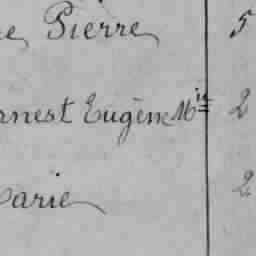 e Pierre 5
rnest Eugène Mie 2
arie 2